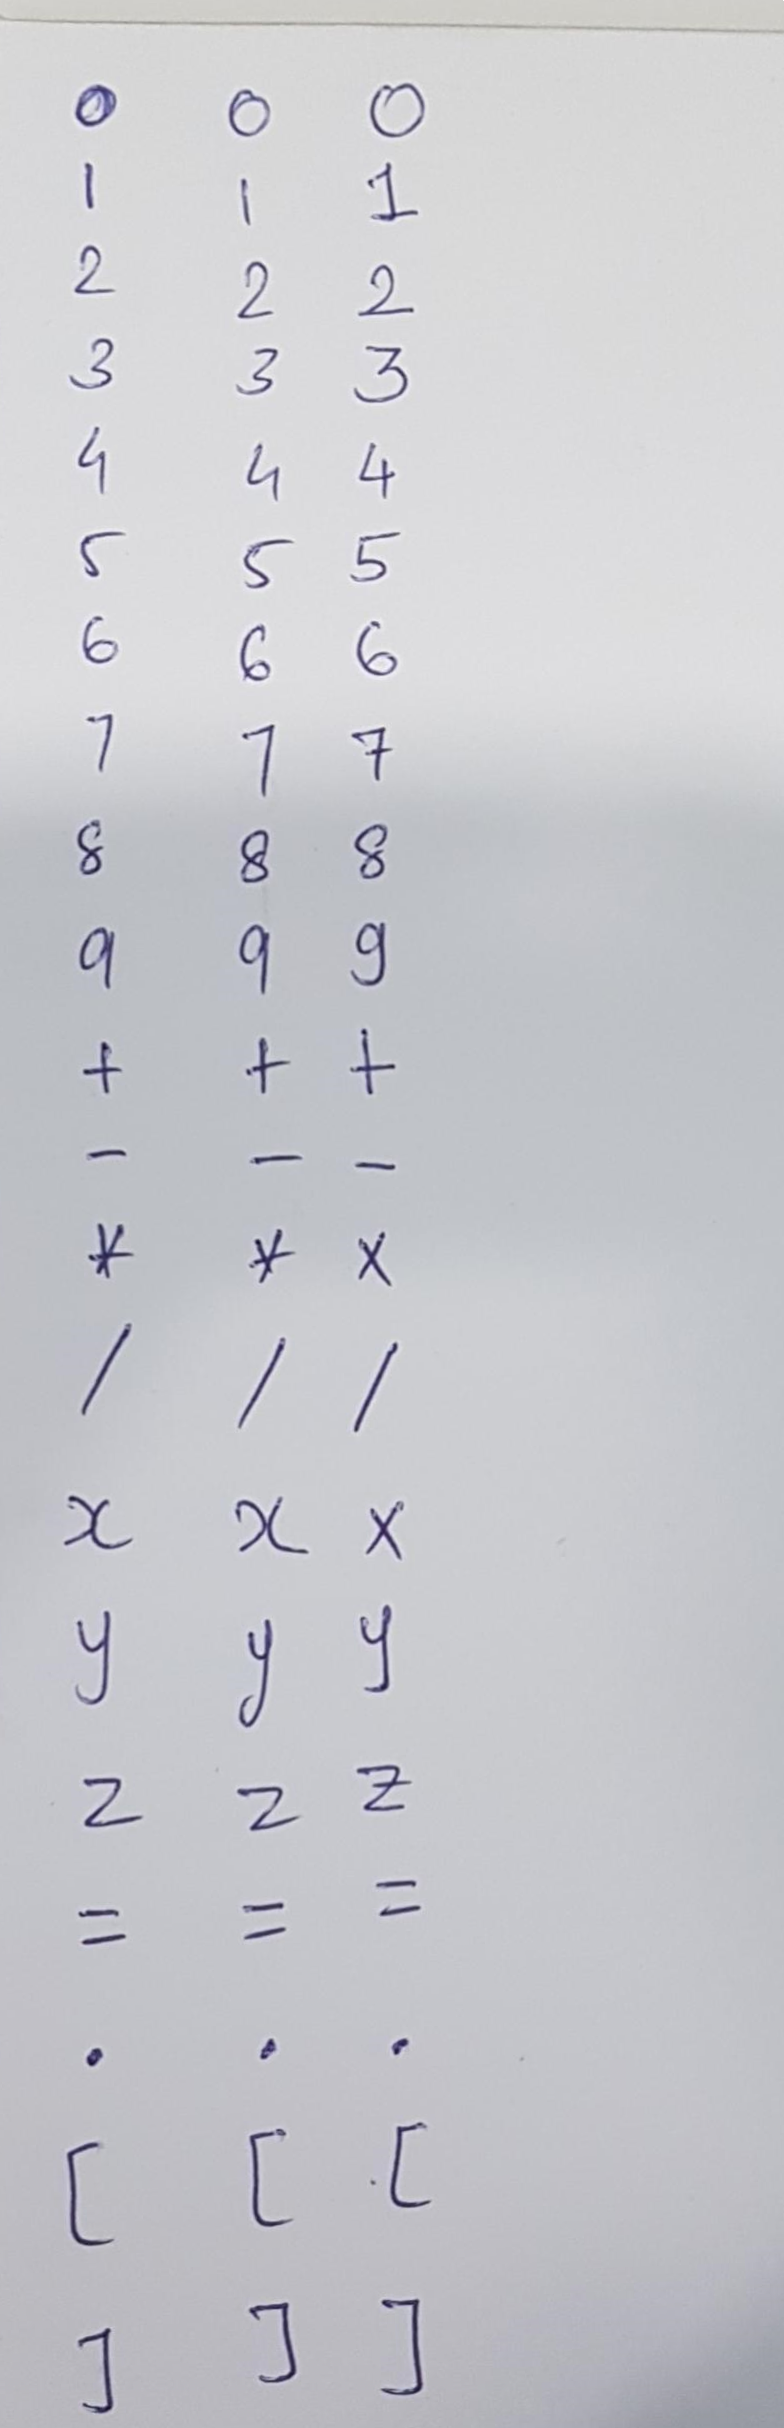 0 0 0
1 1 1
2 2 2
3 3 3
4 4 4
5 5 5
6 6 6
7 7 7
8 8 8
9 9 9
+ + +
- - -
* * x
/ / /
x x x
y y y
z z z
= = =
. . .
[ [ [
] ] ]